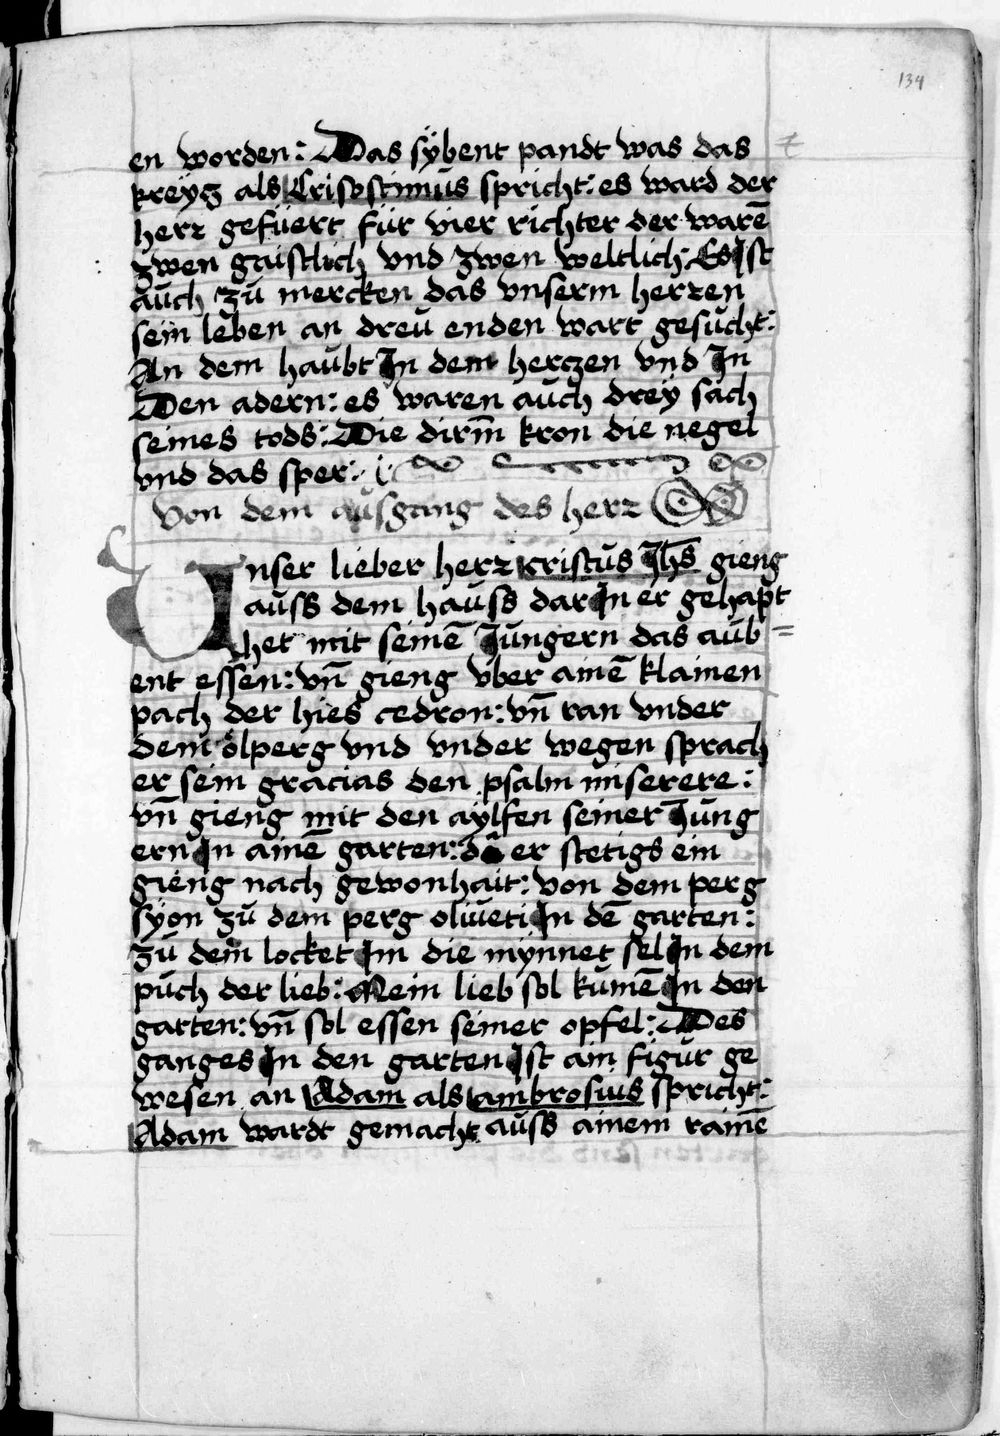 134
en worden: Das sÿbent pandt was das
kreÿcz als Crisostimus spricht: es ward der
herr gefüert für vier richter der warē
zwen gaistlich vnd zwen weltlich: Es Ist
auch zů mercken das vnserm herren
sein leben an dreü enden wart gesůcht:
An dem haubt In dem herczen vnd In
Den adern: es waren auch dreÿ sach
seines tods: Die dirm̄ kron die negel
vnd das sper:
Von dem ausgang des herr
Unser lieber herr kristus Jhs̄ gieng
auss dem hauss dar In er gehapt
het mit seinē Jungern das aub
ent essen: vn̄ gieng vber ainē klainen
pach der hies cedron: vn̄ ran vnder
dem ölperg vnd vnder wegen sprach
er sein gracias den psalm miserere:
vn̄ gieng mit den aÿlfen seiner Jung
ern In ainē garten: da er stetigs ein
gieng nach gewonhait: von dem perg
sÿon zů dem perg oliueti In dē garten:
zů dem locket Im die mÿnnet sel In dem
půch der lieb: Mein lieb sol kumē In den
garten: vn̄ sol essen seiner opfel: Des
ganges In den garten Ist ain figur ge
wesen an Adam als ambrosius spricht:
Adam wardt gemacht auss ainem rainē